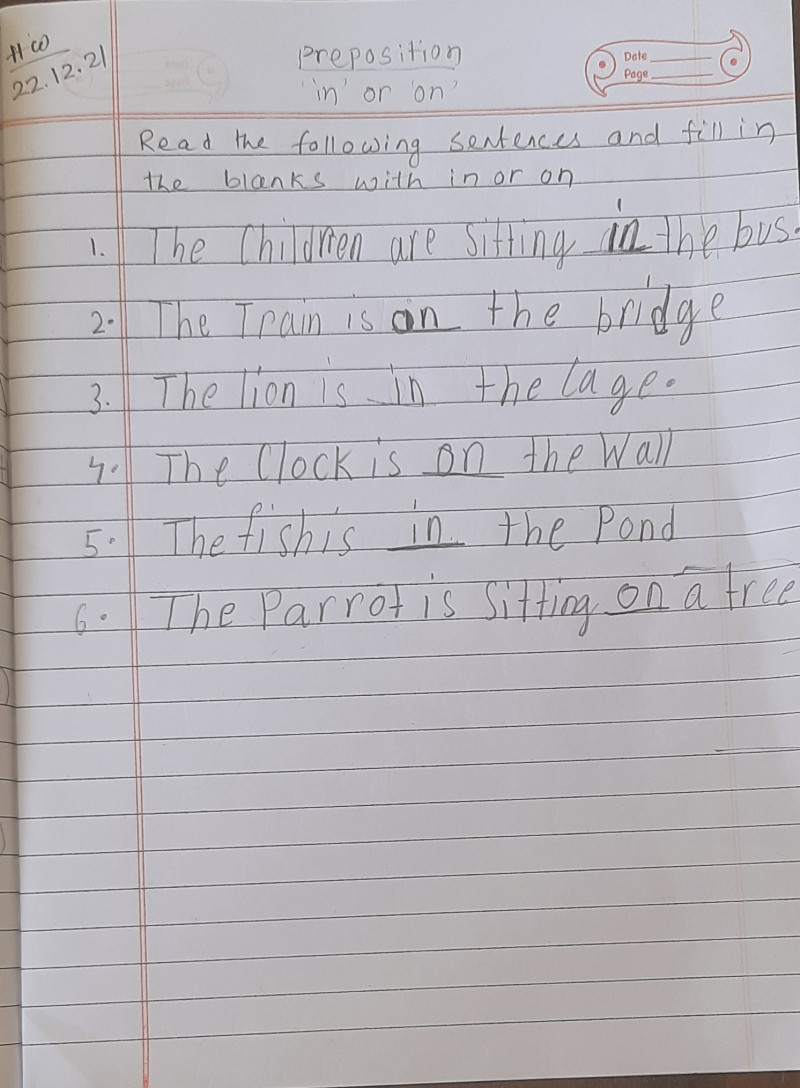 H.W
22.12.21
Preposition
'in' or 'on'
Date
Page
Read the following sentences and fill in
the blanks with in or on
1. The Children are Sitting in the bus.
2. The Train is on the bridge
3. The lion is in the Cage.
4. The Clock is on the Wall
5. The fish is in the Pond
6. The Parrot is Sitting on a tree